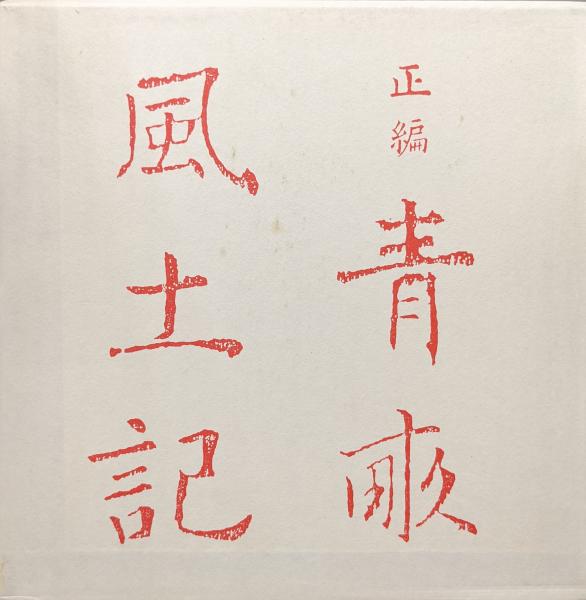 正編 青畝
風土記